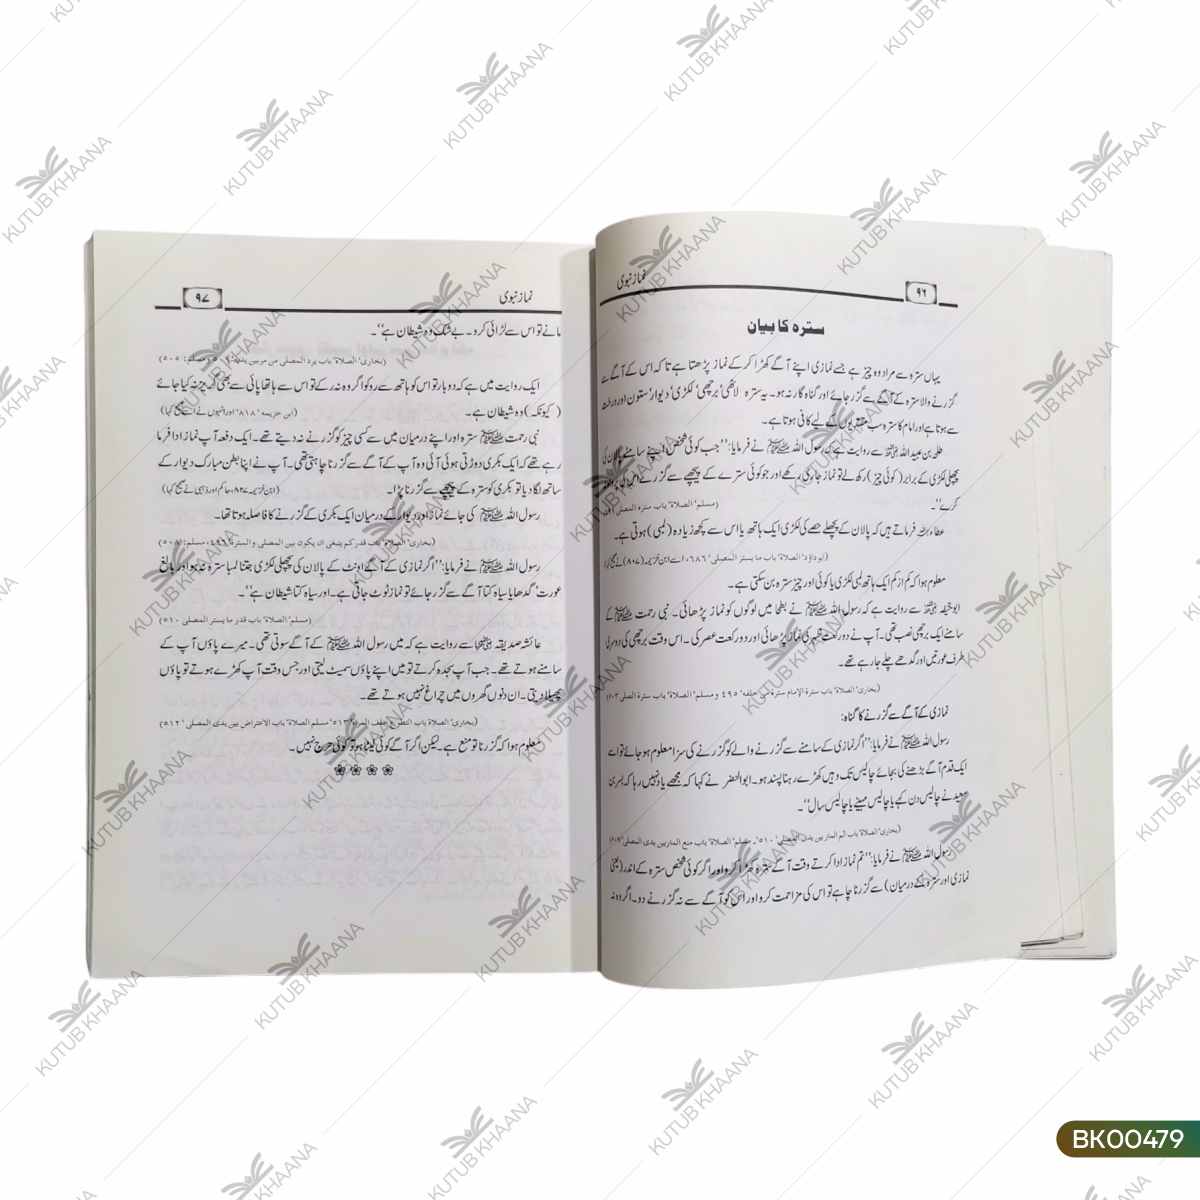 نماز نبوی
۹۶
سترہ کا بیان
یہاں سترہ سے مراد وہ چیز ہے جسے نمازی اپنے آگے کھڑا کر کے نماز پڑھتا ہے تاکہ اس کے آگے سے
گزرنے والا سترہ کے آگے سے گزر جائے اور گناہ گار نہ ہو۔ یہ سترہ لاٹھی' برچھی' لکڑی' دیوار' ستون اور درخت
سے ہوتا ہے اور امام کا سترہ سب مقتدیوں کے لیے کافی ہوتا ہے۔
طلحہ بن عبید اللہ رضی اللہ عنہ سے روایت ہے کہ رسول اللہ ﷺ نے فرمایا: ''جب کوئی شخص اپنے سامنے پالان کی
پچھلی لکڑی کے برابر (کوئی چیز) رکھ لے تو نماز جاری رکھے اور جو کوئی سترے کے پیچھے سے گزرے اس کی پرواہ نہ
کرے''۔
(مسلم' الصلاة' باب سترة المصلی
عطاء رحمہ اللہ فرماتے ہیں کہ پالان کے پچھلے حصے کی لکڑی ایک ہاتھ یا اس سے کچھ زیادہ (لمبی) ہوتی ہے۔
(ابوداؤد' الصلاة' باب ما یستر المصلی' ۶۸۶' اسے ابن خزیمہ (۸۰۷) نے صحیح کہا)
معلوم ہوا کہ کم از کم ایک ہاتھ لمبی لکڑی یا کوئی اور چیز سترہ بن سکتی ہے۔
ابو جحیفہ رضی اللہ عنہ سے روایت ہے کہ رسول اللہ ﷺ نے بطحا میں لوگوں کو نماز پڑھائی۔ نبی رحمت ﷺ کے
سامنے ایک برچھی نصب تھی۔ آپ نے دو رکعت ظہر کی نماز پڑھائی اور دو رکعت عصر کی۔ اس وقت برچھی کی دوسری
طرف عورتیں اور گدھے چلے جا رہے تھے۔
(بخاری' الصلاة' باب سترة الإمام سترة من خلفه' ۴۹۵ و مسلم' الصلاة' باب سترة المصلی' ۵۰۳)
نمازی کے آگے سے گزرنے کا گناہ:
رسول اللہ ﷺ نے فرمایا: ''اگر نمازی کے سامنے سے گزرنے والے کو گزرنے کی سزا معلوم ہو جائے تو اسے
ایک قدم آگے بڑھنے کی بجائے چالیس تک وہیں کھڑے رہنا پسند ہو۔ ابوالنضر نے کہا کہ مجھے یاد نہیں رہا کہ بسر بن
سعید نے چالیس دن کہے یا چالیس مہینے یا چالیس سال''۔
(بخاری' الصلاة' باب اثم المار بین یدی المصلی' ۵۱۰۔ مسلم' الصلاة' باب منع المار بین یدی المصلی' ۵۰۷)
رسول اللہ ﷺ نے فرمایا: ''تم نماز ادا کرتے وقت آگے سترہ کھڑا کرو اور اگر کوئی شخص سترہ کے اندر (یعنی
نمازی اور سترہ کے درمیان) سے گزرنا چاہے تو اس کی مزاحمت کرو اور اس کو آگے سے نہ گزرنے دو۔ اگر وہ نہ
نماز نبوی
۹۷
مانے تو اس سے لڑائی کرو۔ بے شک وہ شیطان ہے''۔
(بخاری' الصلاة' باب یرد المصلی من مر بین یدیه' ۵۰۹' مسلم: ۵۰۵)
ایک روایت میں ہے کہ دو بار تو اس کو ہاتھ سے روکو اگر وہ نہ رکے تو اس سے ہاتھا پائی سے بھی گریز نہ کیا جائے
(کیونکہ) وہ شیطان ہے۔
(ابن خزیمه' ۸۱۸' اور انہوں نے اسے صحیح کہا)
نبی رحمت ﷺ سترہ اور اپنے درمیان میں سے کسی چیز کو گزرنے نہ دیتے تھے۔ ایک دفعہ آپ نماز ادا فرما
رہے تھے کہ ایک بکری دوڑتی ہوئی آئی وہ آپ کے آگے سے گزرنا چاہتی تھی۔ آپ نے اپنا بطن مبارک دیوار کے
ساتھ لگا دیا تو بکری کو سترہ کے پیچھے سے گزرنا پڑا۔
(ابن خزیمہ ۸۲۷' حاکم اور ذہبی نے صحیح کہا)
رسول اللہ ﷺ کی جائے نماز اور دیوار کے درمیان ایک بکری کے گزرنے کا فاصلہ ہوتا تھا۔
(بخاری' الصلاة' باب قدر کم ینبغی ان یکون بین المصلی والسترة' ۴۹۶' مسلم: ۵۰۸)
رسول اللہ ﷺ نے فرمایا: ''اگر نمازی کے آگے اونٹ کے پالان کی پچھلی لکڑی جتنا لمبا سترہ نہ ہو اور بالغ
عورت' گدھا یا سیاہ کتا آگے سے گزر جائے تو نماز ٹوٹ جاتی ہے۔ اور سیاہ کتا شیطان ہے''۔
(مسلم' الصلاة' باب قدر ما یستر المصلی' ۵۱۰)
عائشہ صدیقہ رضی اللہ عنہا سے روایت ہے کہ میں رسول اللہ ﷺ کے آگے سوتی تھی۔ میرے پاؤں آپ کے
سامنے ہوتے تھے۔ جب آپ سجدہ کرتے تو میں اپنے پاؤں سمیٹ لیتی اور جس وقت آپ کھڑے ہوتے تو پاؤں
پھیلا دیتی۔ ان دنوں گھروں میں چراغ نہیں ہوتے تھے۔
(بخاری' الصلاة باب التطوع خلف المرأة' ۵۱۳' مسلم الصلاة' باب الاعتراض بین یدی المصلی' ۵۱۲)
معلوم ہوا کہ گزرنا تو منع ہے۔ لیکن اگر آگے کوئی لیٹا ہو تو کوئی حرج نہیں۔
KUTUB KHAANA
BK00479